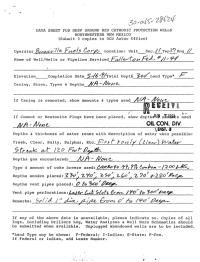 30-045-28524
DATA SHEET FOR DEEP GROUND BED CATHODIC PROTECTION WELLS
NORTHWESTERN NEW MEXICO
(Submit 3 copies to OCD Aztec Office)
Operator Bonneville Fuels Corp. Location: Unit Sec. Twp Rng 11
Name of Well/Wells or Pipeline Serviced Fullerton Fed. # 11-44
Elevation Completion Date Total Depth 300' Land Type* F
Casing, Sizes, Types & Depths N/A - None
If Casing is cemented, show amounts & types used N/A - None
If Cement or Bentonite Plugs have been placed, show depths & amounts used
N/A - None
OIL CON. DIV
DIST. 3
Depths & thickness of water zones with description of water when possible:
Fresh, Clear, Salty, Sulphur, Etc. Clear Water
Streak at 120 Foot Depth
Depths gas encountered: N/A - None
Type & amount of coke breeze used:
Depths anodes placed:
Depths vent pipes placed: 0 to 300' Deep
Vent pipe perforations: 140' to 300' Deep
Remarks: Solid 1" dia. pipe from 0 to 140' Deep
If any of the above data is unavailable, please indicate so. Copies of all
logs, including Drillers Log, Water Analyses & Well Bore Schematics should
be submitted when available. Unplugged abandoned wells are to be included.
*Land Type may be shown: F-Federal; I-Indian; S-State; P-Fee.
If Federal or Indian, add Lease Number.